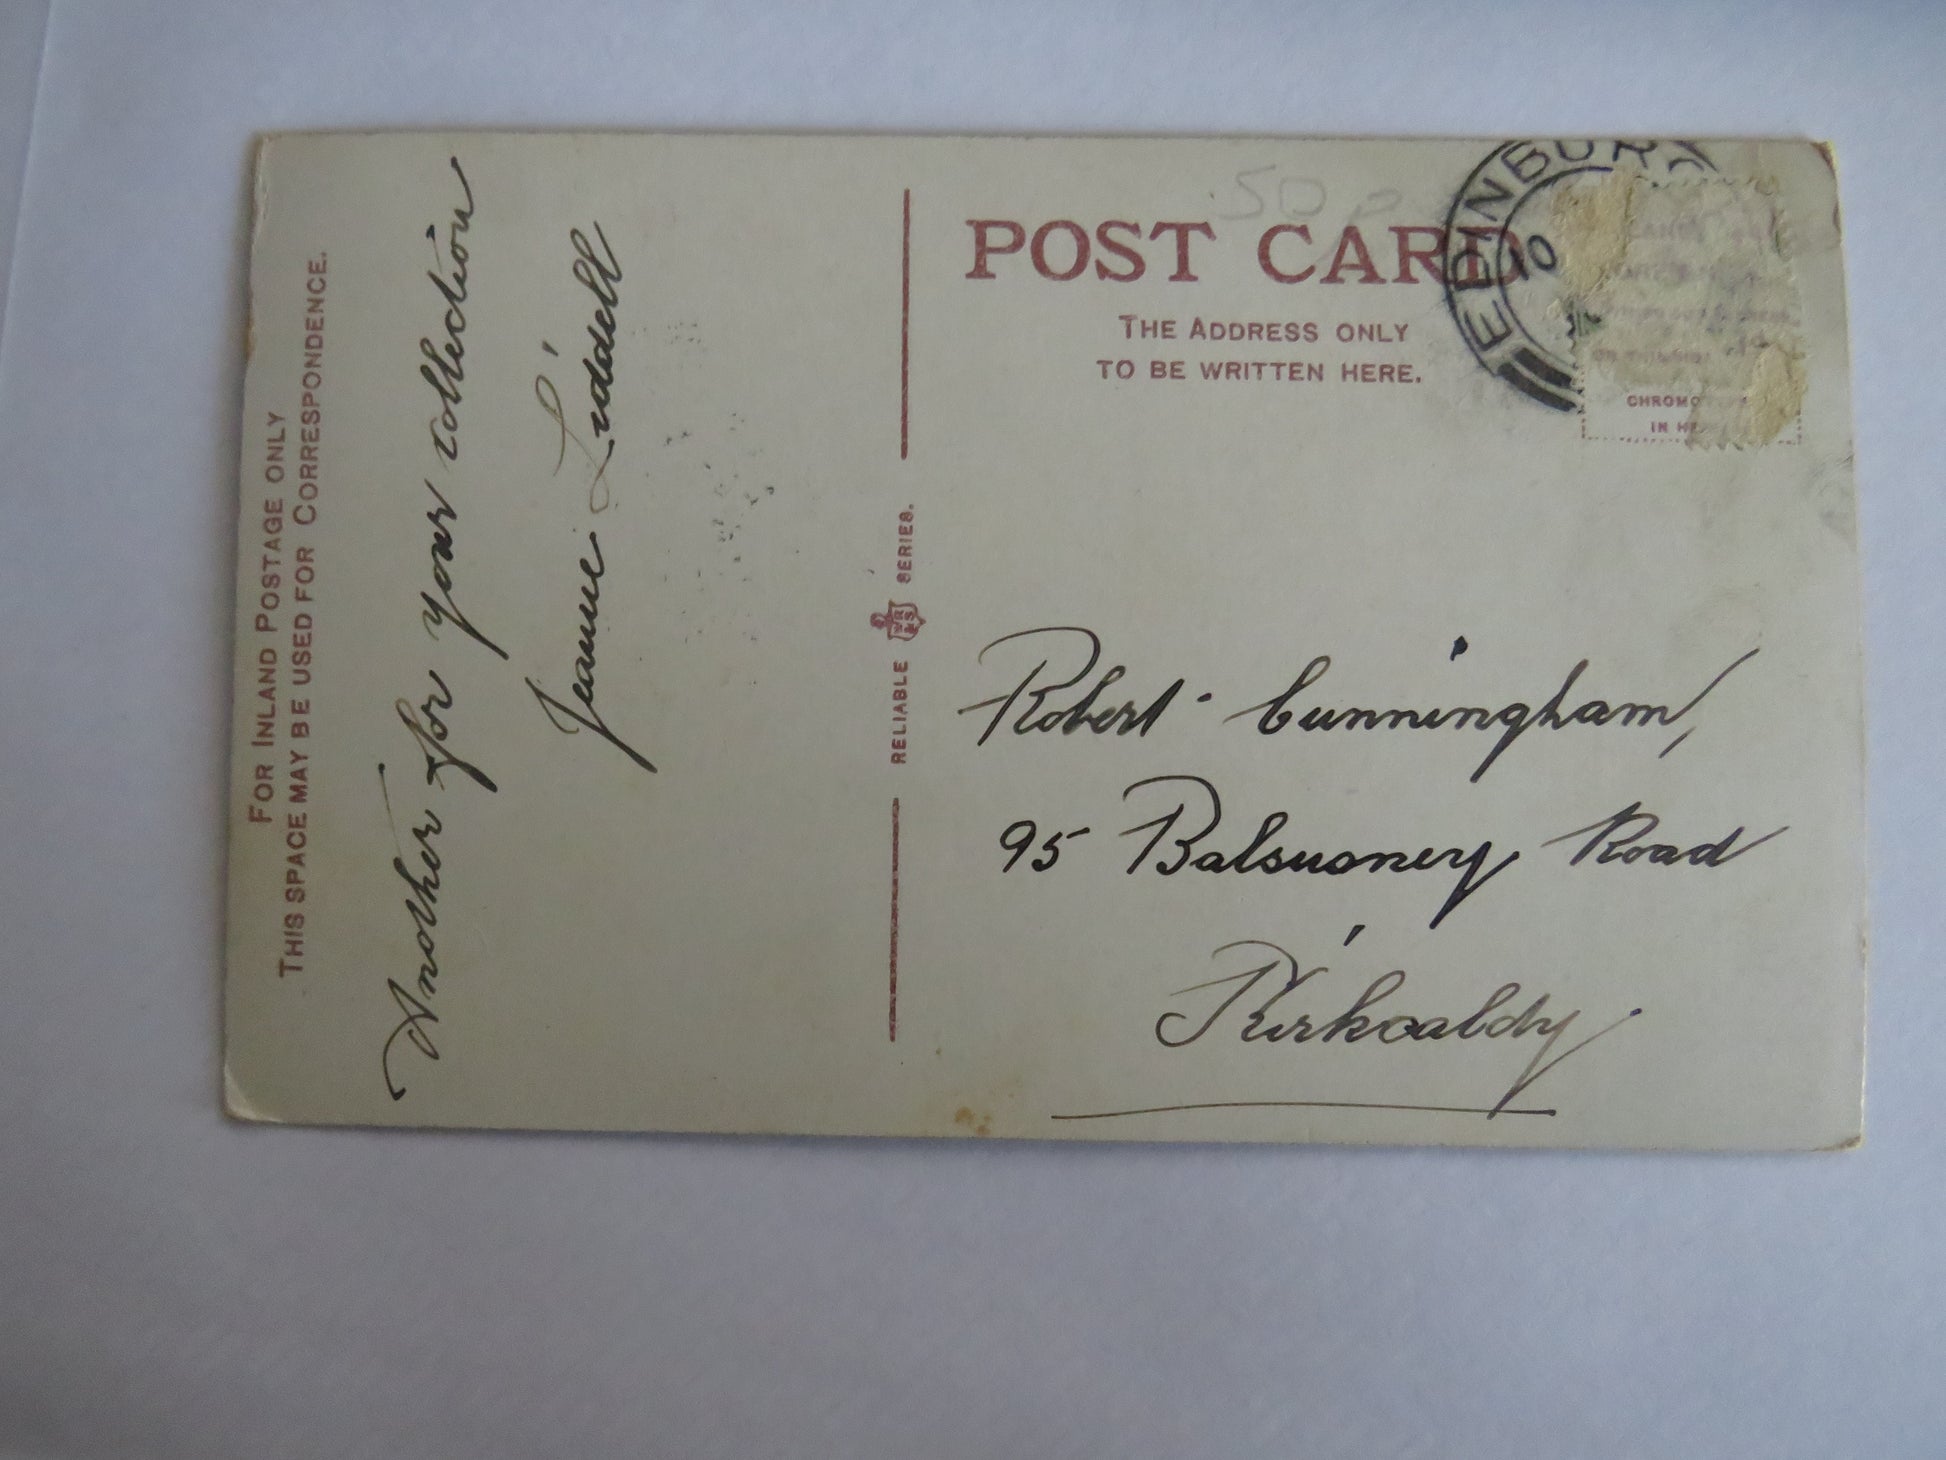 FOR INLAND POSTAGE ONLY
THIS SPACE MAY BE USED FOR CORRESPONDENCE.
Another for your collection
Jeanne Liddell
RELIABLE WR&S SERIES.
50p
POST CARD
THE ADDRESS ONLY
TO BE WRITTEN HERE.
EDINBUR
10
CHROMO
IN
Robert Cunningham,
95 Balsusney Road
Kirkcaldy.